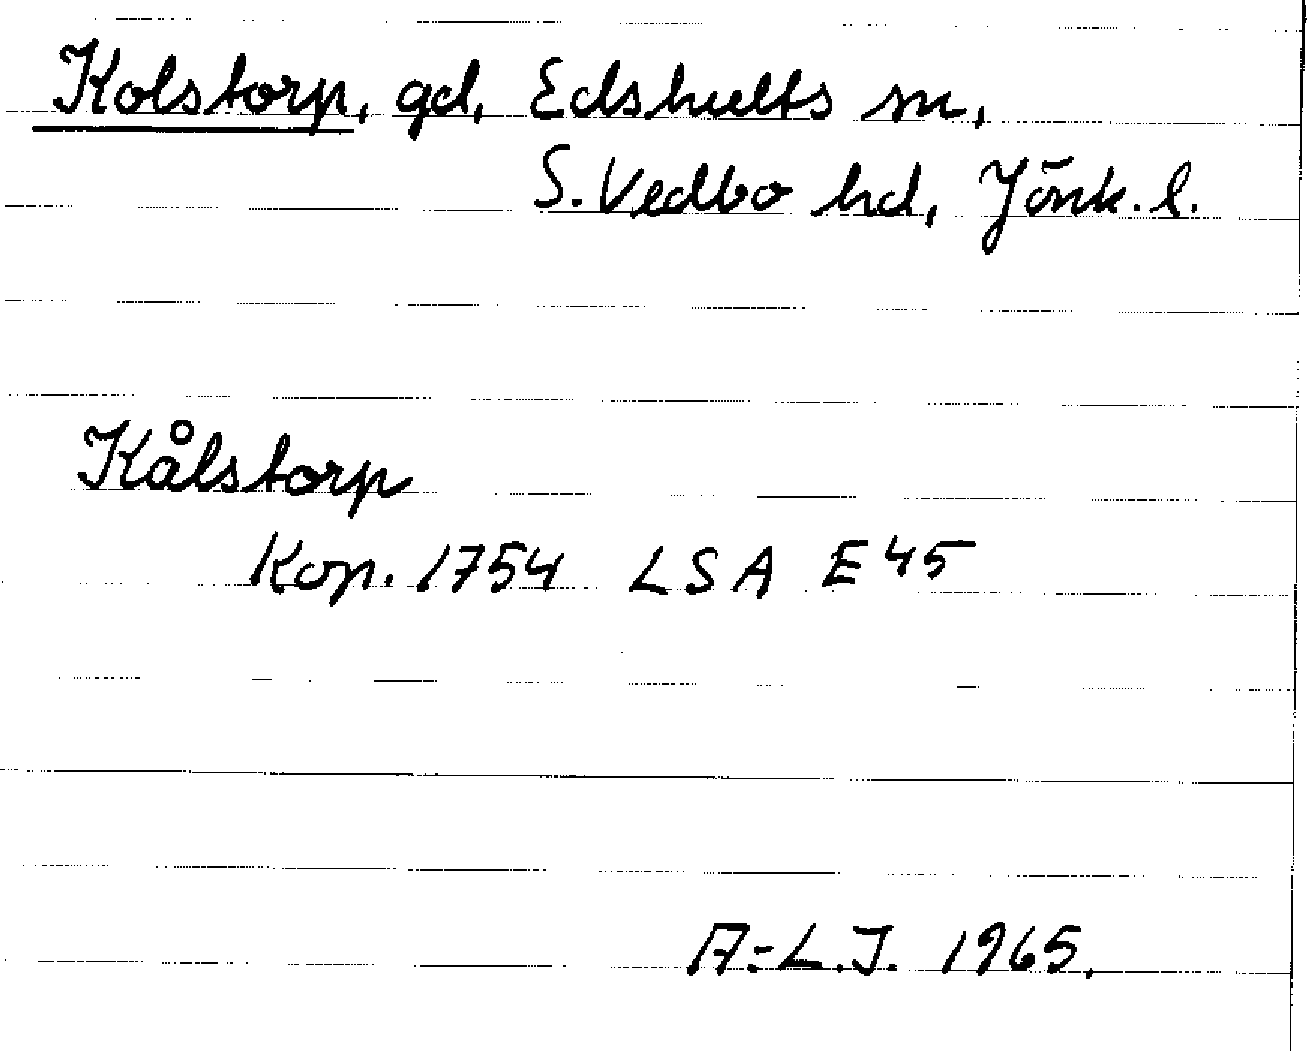 Kolstorp, gd, Edshults sn,
S. Vedbo hd, Jönk. l.
Kålstorp
Kop. 1754 LSA E45
A.-L.J. 1965.